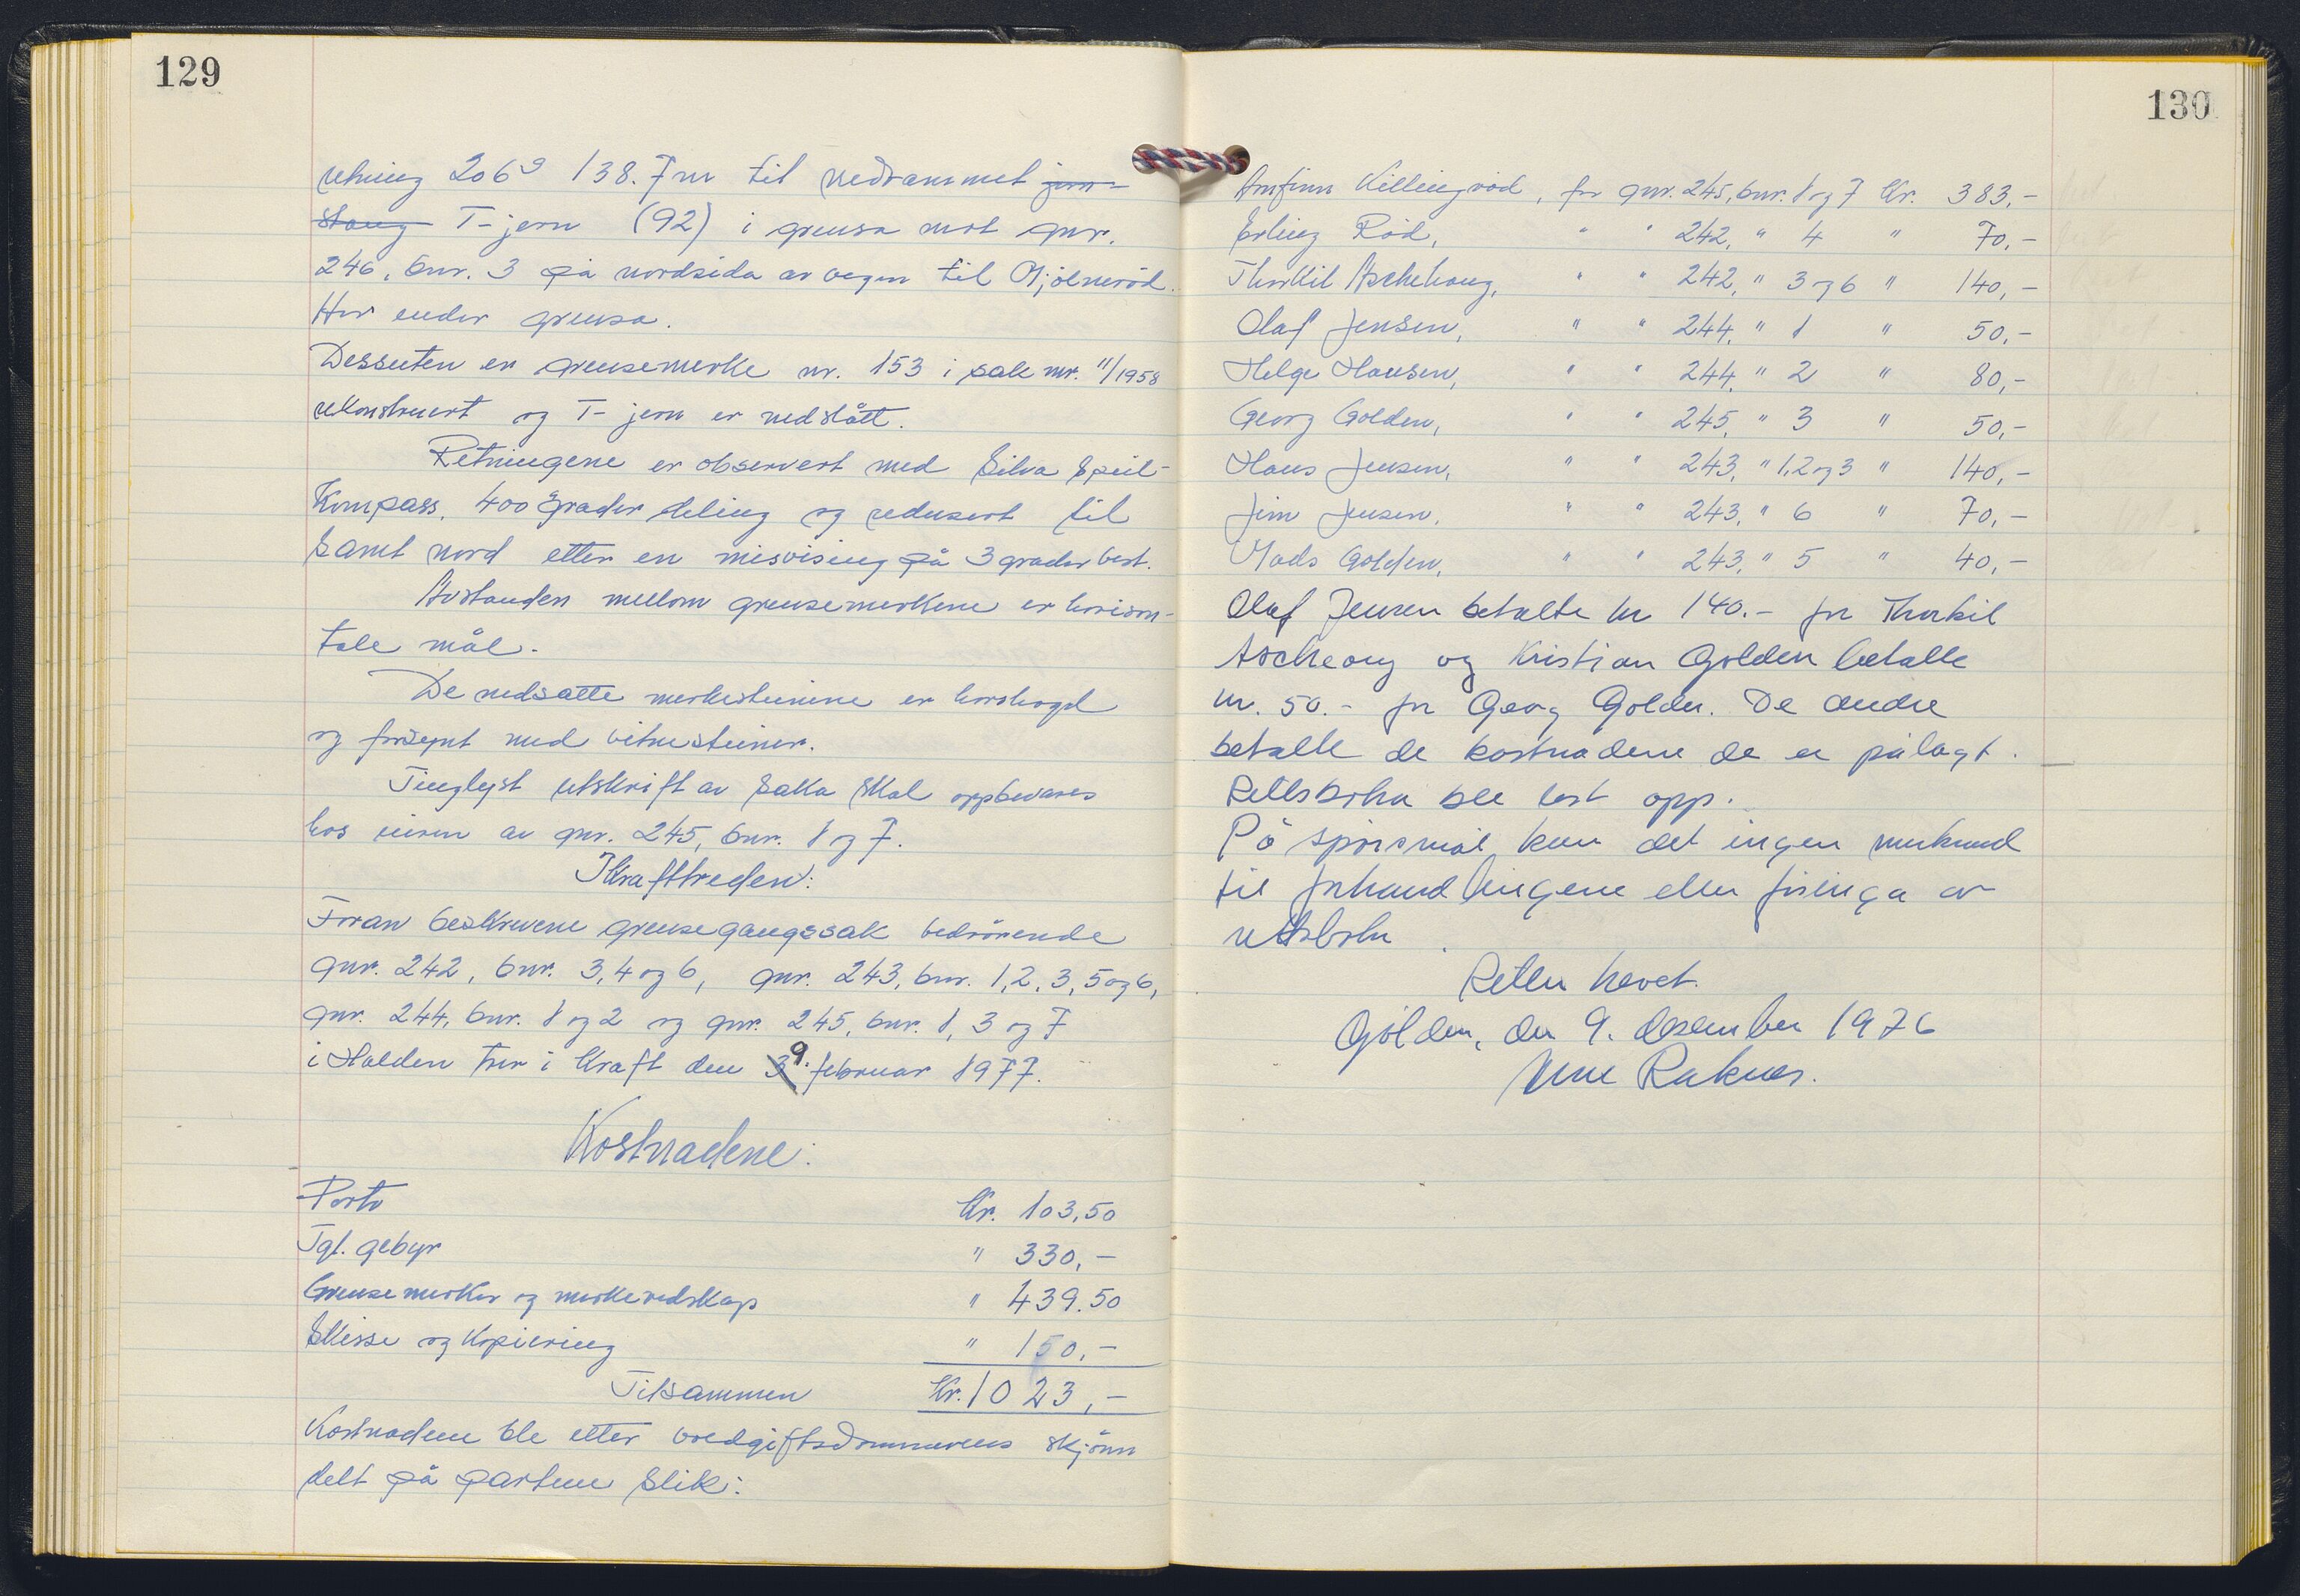 129
retning 206g 138.7m til nedrammet jern-
stang T-jern (92) i grensa mot gnr.
246, bnr. 3 på nordsida av vegen til Gjölneröd.
Her ender grensa.
Dessuten er grensemerke nr. 153 i sak nr. 11/1958
rekonstruert og T-jern er nedslått.
Retningene er observert med Silva Speil-
Kompass, 400 grader deling og redusert til
Sant nord etter en misvising på 3 grader vest.
Avstanden mellom grensemerkene er horison-
tale mål.
De nedsatte merkesteinene er korshogd
og forsynt med vitnesteiner.
Tinglyst utskrift av Saka skal oppbevares
hos eieren av gnr. 245, bnr. 1 og 7.
Ikrafttreden:
Foran beskrevene grensegangssak vedrörende
gnr. 242, bnr. 3, 4 og 6, gnr. 243, bnr. 1, 2, 3, 5 og 6,
gnr. 244, bnr. 1 og 2 og gnr. 245, bnr. 1, 3 og 7
i Halden trer i Kraft den 3 9. februar 1977.
Kostnadene:
Porto Kr. 103,50
Tgl. gebyr " 330,-
Grensemerker og merkeredskap " 439.50
Skisse og Kopiering " 150,-
Tilsammen Kr. 1023,-
Kostnadene ble etter voldgiftsdommerens skjönn
delt på partene slik:
130
Arnfinn Killingröd, for gnr. 245, bnr. 1 og 7 Kr. 383,-
Erling Röd, " " 242, " 4 " 70,-
Thorkil Aschehoug, " " 242, " 3 og 6 " 140,-
Olaf Jensen, " " 244, " 1 " 50,-
Helge Hansen, " " 244, " 2 " 80,-
Georg Golden, " " 245, " 3 " 50,-
Hans Jensen, " " 243, " 1, 2 og 3 " 140,-
Jim Jensen, " " 243, " 6 " 70,-
Mads Golden, " " 243, " 5 " 40,-
Olaf Jensen betalte kr 140.- for Thorkil
Ascheoug og Kristian Golden betalte
kr. 50.- for Georg Golden. De andre
betalte de kostnadene de er pålagt.
Rettsboka ble lest opp.
På spörsmål kom det ingen merknad
til forhandlingene eller föringa av
rettsboka.
Retten hevet.
Gölden, den 9. desember 1976
Raknes.